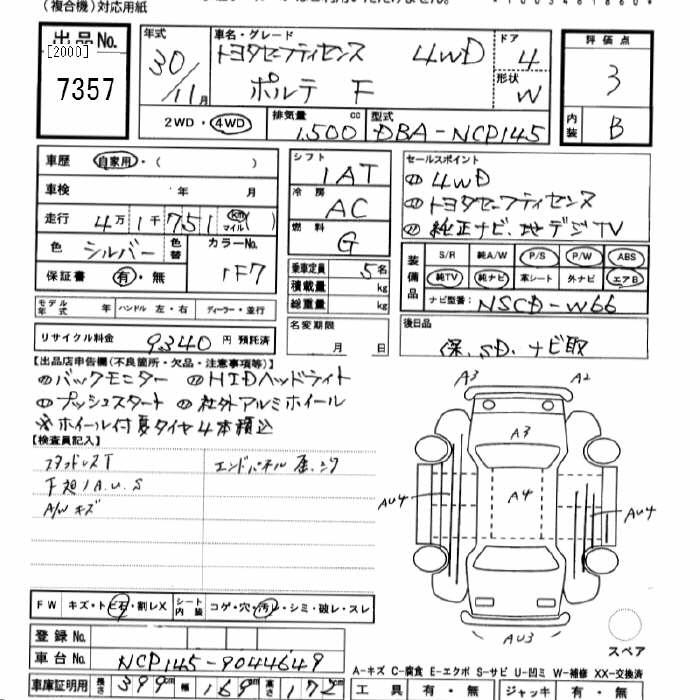 (複合機)対応用紙
出品No.
[2000]
7357
年式
30/11月
車名・グレード
トヨタセーフティセンス 4WD
ポルテ F
ドア
4
形状
W
評価点
3
内装
B
2WD・4WD
排気量
1,500 cc
型式
DBA-NCP145
車歴 自家用・( )
車検 年 月
走行 4万1千751 km マイル ( )
色 シルバー 色替
カラーNo.
1F7
保証書 有・無
モデル年式 年 ハンドル 左・右 ディーラー・並行
リサイクル料金 9,340 円 預託済
シフト
IAT
冷房
AC
燃料
G
乗車定員 5名
積載量 kg
総重量 kg
名変期限
月 日
セールスポイント
4WD
トヨタセーフティセンス
純正ナビ、地デジTV
装備品
S/R 純A/W P/S P/W ABS
純TV 純ナビ 革シート 外ナビ エアB
ナビ型番: NSCD-W66
後日品
保、SD、ナビ取
【出品店申告欄(不良箇所・欠品・注意事項等)】
バックモニター HIDヘッドライト
プッシュスタート 社外アルミホイール
※ホイール付夏タイヤ4本積込
【検査員記入】
スタッドレスT
下廻りA.U.S
A/Wキズ
エンドパネル
A3 A2
A3
A4
AU4
AU4
AU3
スペア
FW キズ・トビ石・割レX
シート内装 コゲ・穴・汚レ・シミ・破レ・スレ
登録No.
車台No. NCP145-9044649
車庫証明用 長さ 399cm 幅 169cm 高さ 172cm
A-キズ C-腐食 E-エクボ S-サビ U-凹ミ W-補修 XX-交換済
工具 有・無 ジャッキ 有・無